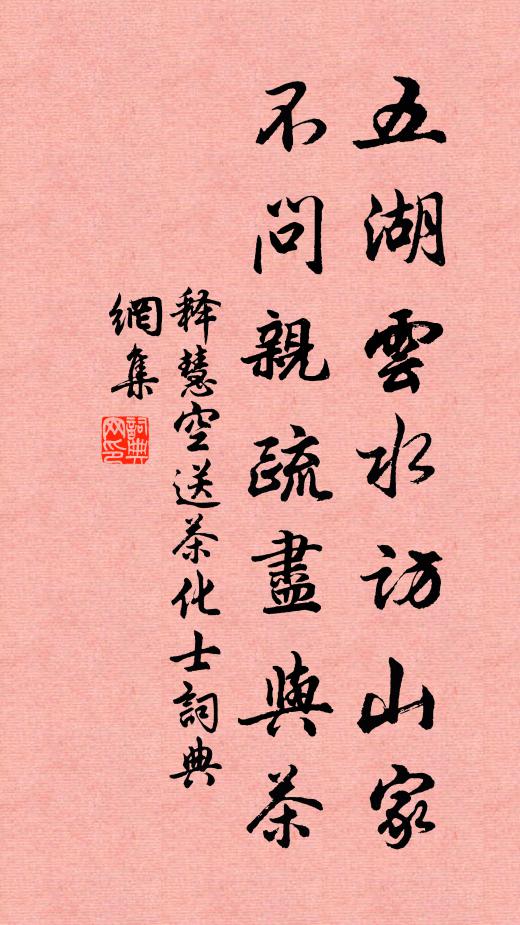 五湖雲水访山家
不問親疏盡與茶
释慧空送茶化士詞典
網集
詞典
网印